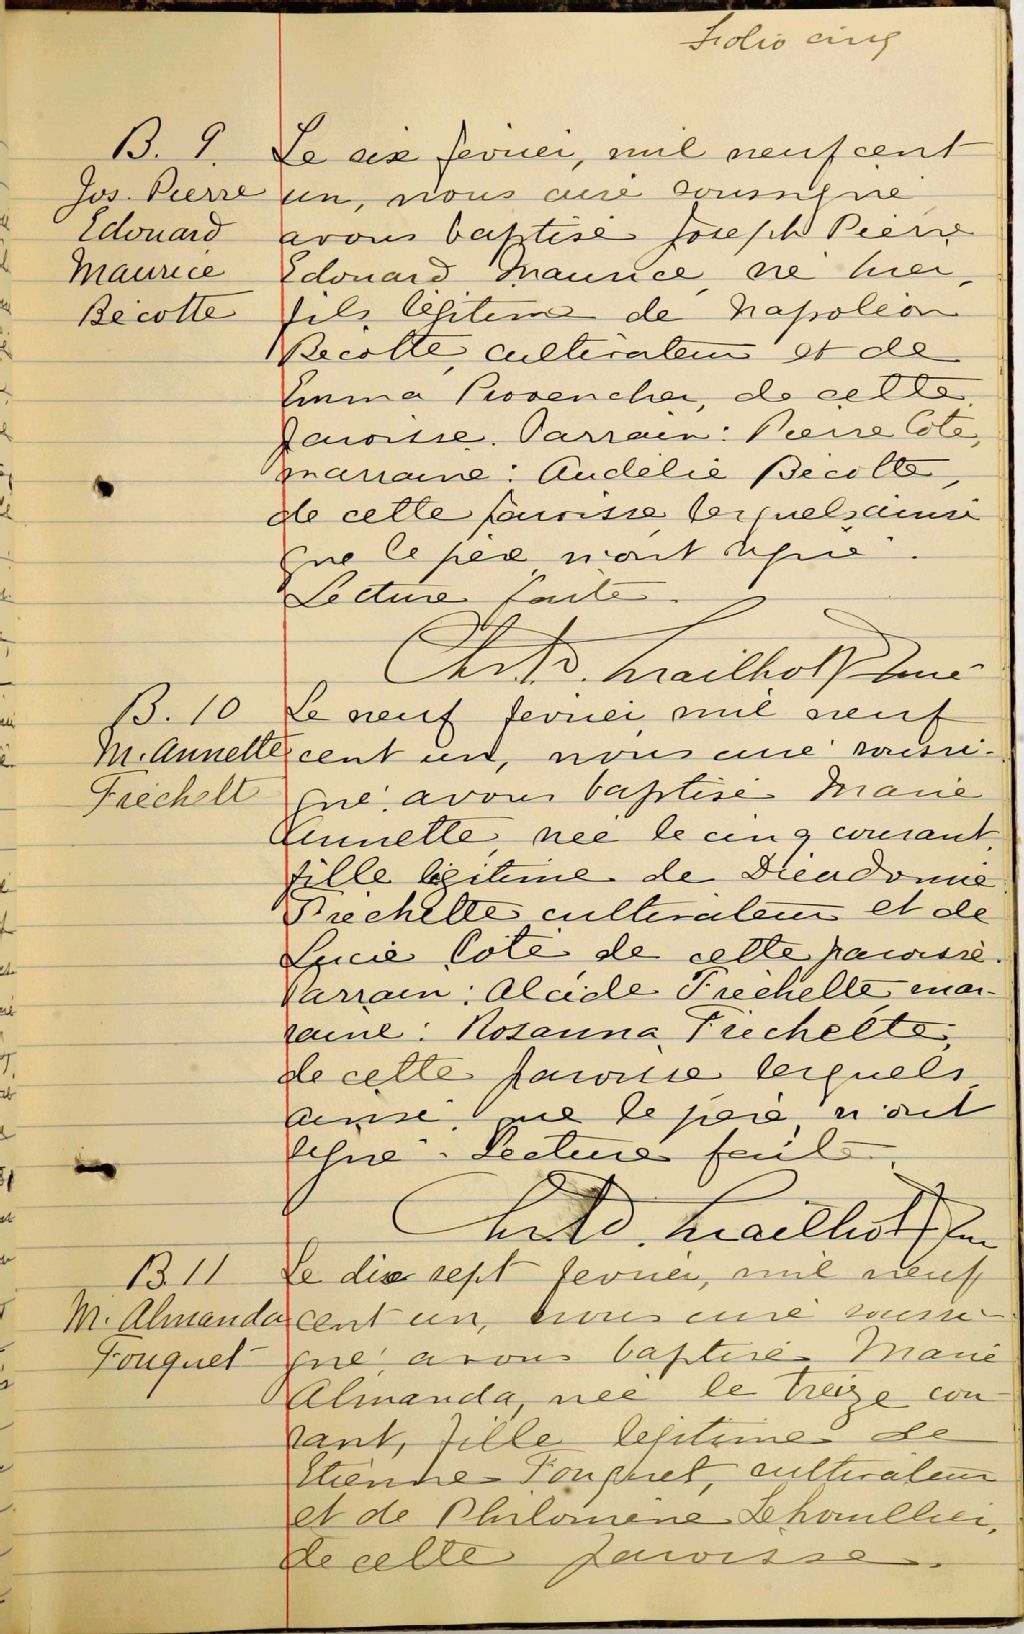 Folio cinq
B. 9.
Jos. Pierre
Edouard
Maurice
Bécotte
Le six fevrier, mil neuf cent
un, nous curé soussigné
avons baptisé Joseph Pierre
Edouard Maurice, né hier,
fils légitime de Napoléon
Bécotte, cultivateur et de
Emma Provencher, de cette
paroisse. Parrain: Pierre Coté,
marraine: Audélie Bécotte,
de cette paroisse lesquels ainsi
que le père n'ont signé.
Lecture faite.
Mailhot Ptre curé
B. 10
M. Annette
Fréchett
Le neuf fevrier mil neuf
cent un, nous curé soussi-
gné avons baptisé Marie
Annette, née le cinq courant,
fille légitime de Dieudonné
Fréchette cultivateur et de
Lucie Coté de cette paroisse.
Parrain: Alcide Fréchette, mar-
raine: Rosanna Fréchette,
de cette paroisse lesquels
ainsi que le père, n'ont
signé. Lecture faite.
Mailhot Ptre
B 11
M. Almanda
Fouquet
Le dix sept fevrier, mil neuf
cent un, nous curé soussi-
gné avons baptisé Marie
Almanda, née le treize cou-
rant, fille légitime de
Etienne Fouquet, cultivateur
et de Philomène Lehoullier,
de cette paroisse.